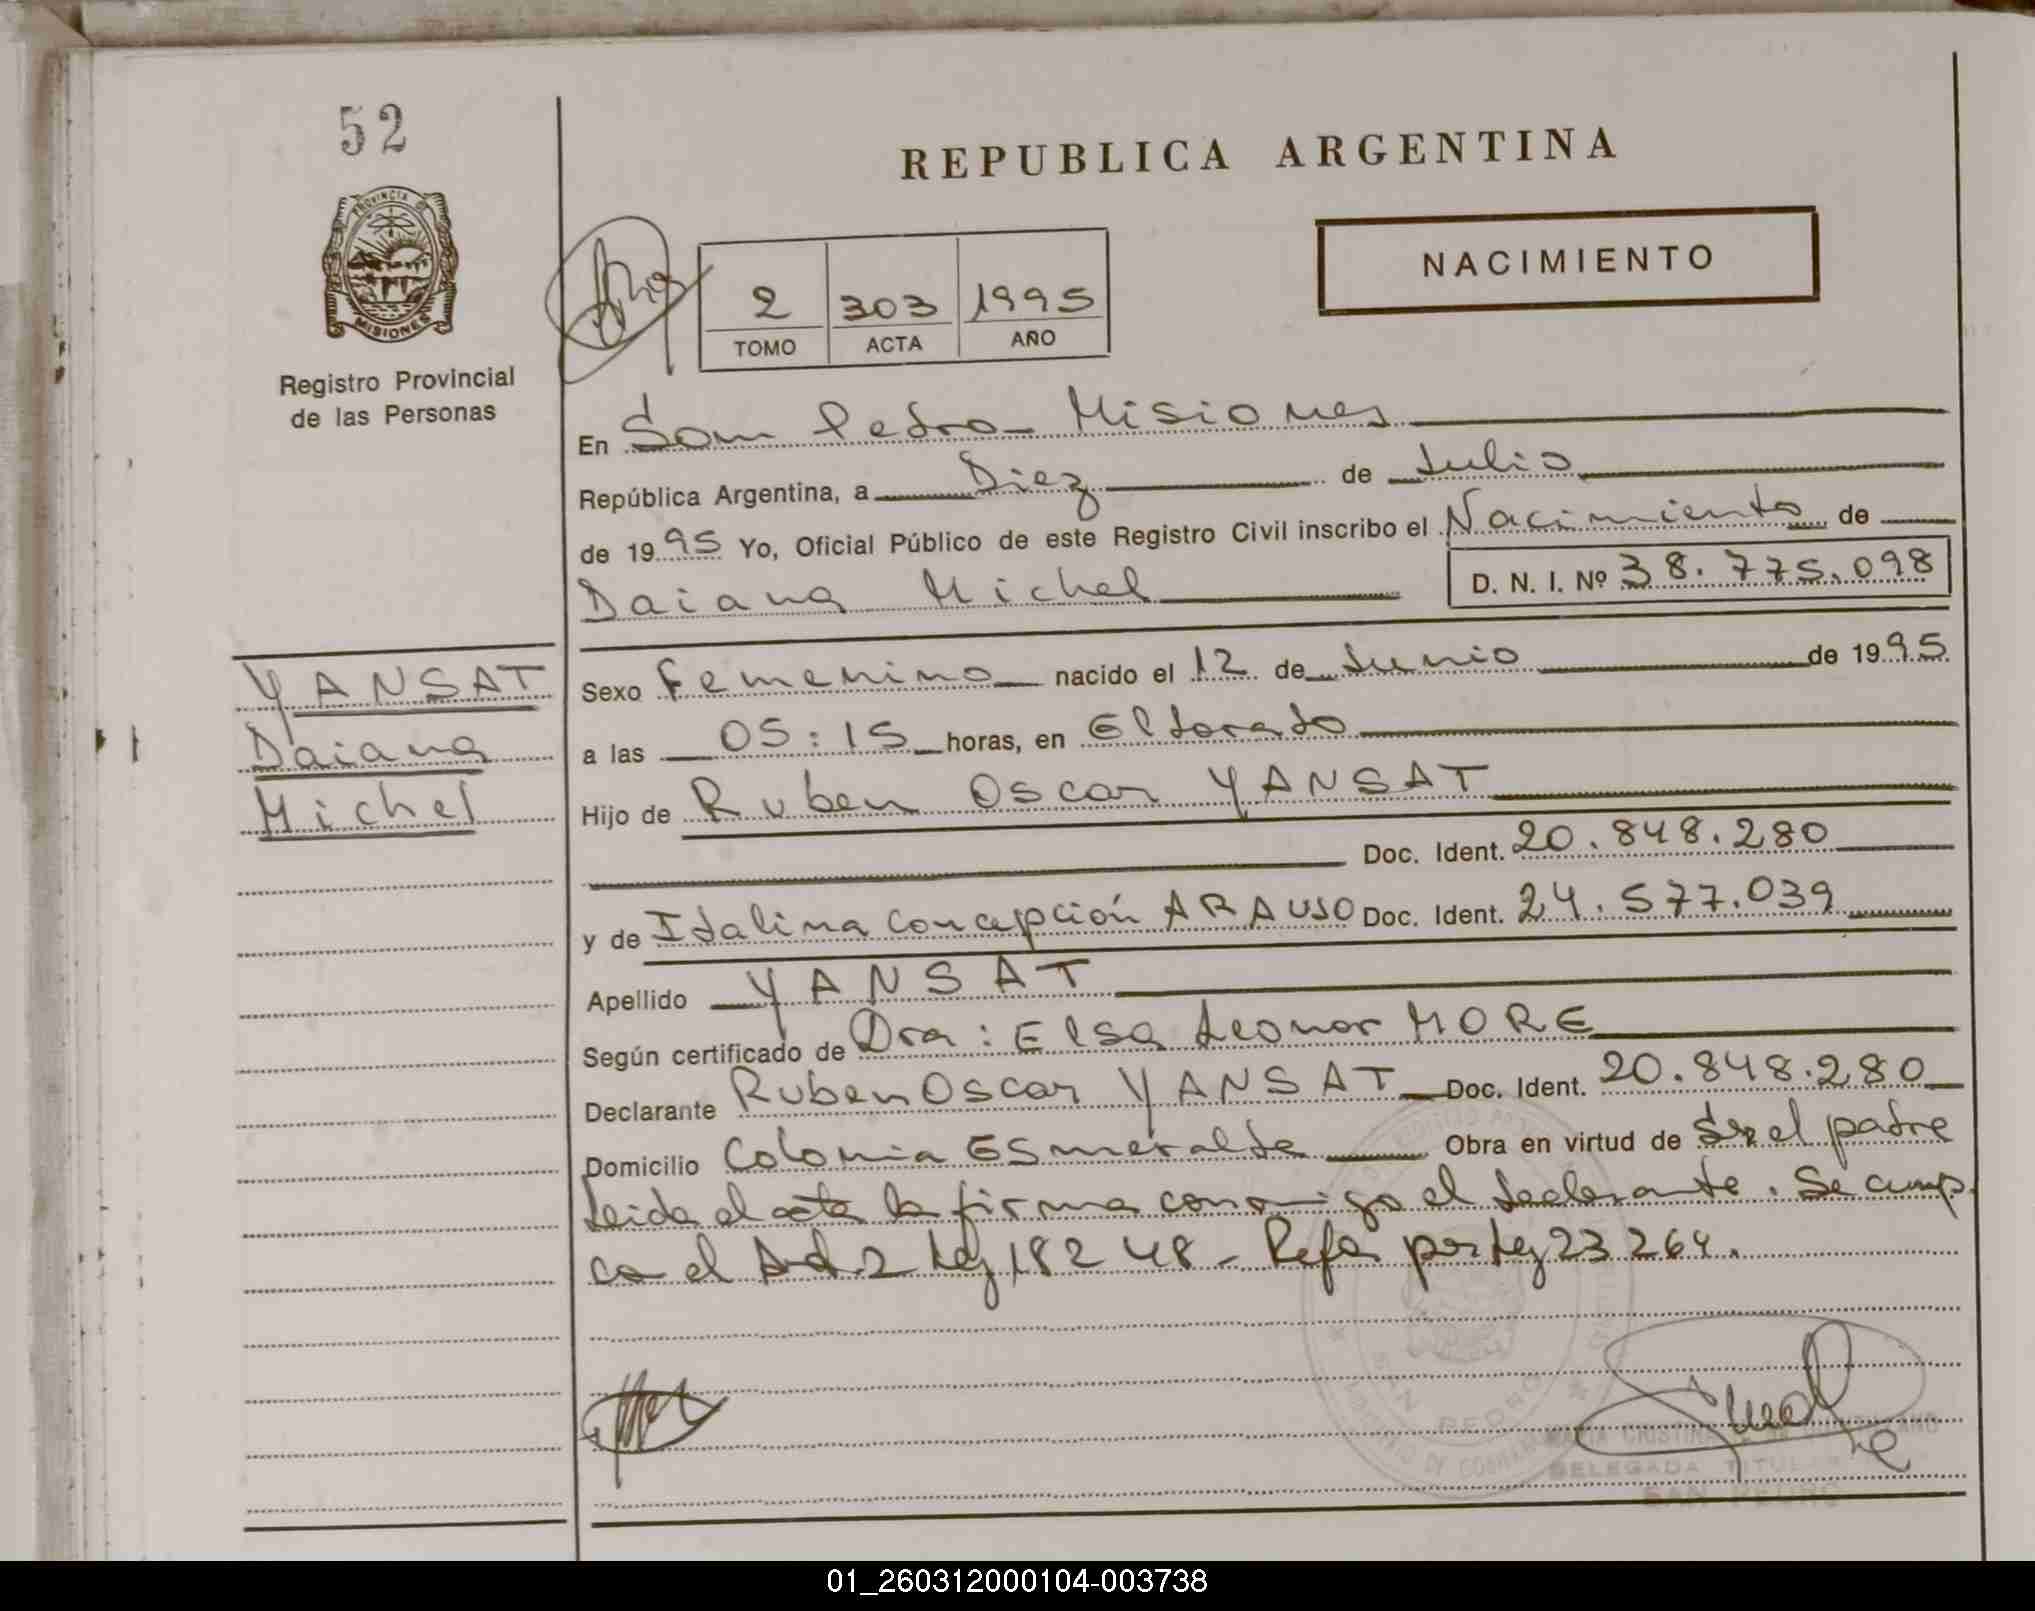 52
PROVINCIA DE
MISIONES
Registro Provincial
de las Personas
REPUBLICA ARGENTINA
NACIMIENTO
2 303 1995
TOMO ACTA AÑO
En San Pedro - Misiones
República Argentina, a Diez de Julio
de 1995 Yo, Oficial Público de este Registro Civil inscribo el Nacimiento de
Daiana Michel D. N. I. Nº 38.775.098
YANSAT
Daiana
Michel
Sexo Femenino nacido el 12 de Junio de 1995
a las 05:15 horas, en Eldorado
Hijo de Ruben Oscar YANSAT
Doc. Ident. 20.848.280
y de Idalina Concepción ARAUJO Doc. Ident. 24.577.039
Apellido YANSAT
Según certificado de Dra: Elsa Leonor MORE
Declarante Ruben Oscar YANSAT Doc. Ident. 20.848.280
Domicilio Colonia Esmeralda Obra en virtud de Ser el padre
Leida el acta la firma conmigo el declarante. Se cump
con el Art. 2 Ley 18248 - Refa por Ley 23264.
SAN PEDRO
MARIA CRISTINA
DELEGADA TITULAR
SAN PEDRO
01_260312000104-003738